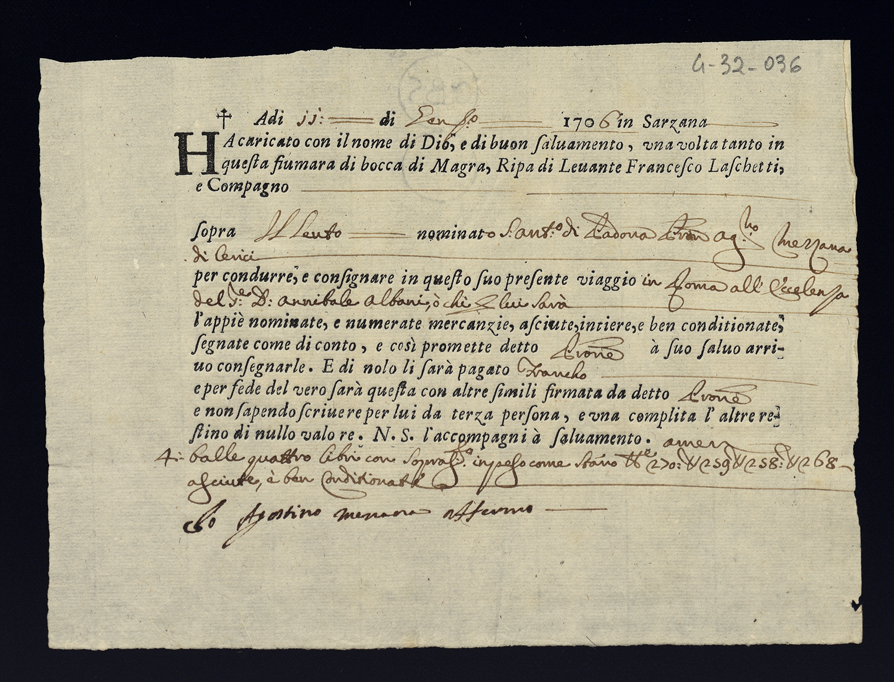 G-32-036
✝ Adi 11: di Gen.º 1706 in Sarzana
HA caricato con il nome di Dio, e di buon saluamento, vna volta tanto in
questa fiumara di bocca di Magra, Ripa di Leuante Francesco Laschetti,
e Compagno
sopra Il Leuto nominato S. Ant.º di Padova Pron Ag.ⁿᵒ Mezzana
di Lerici
per condurre, e consignare in questo suo presente viaggio in Roma all' Eccelenza
del S.ʳᵉ D: Annibale Albani, ò chi P lui Sarà
l'appiè nominate, e numerate mercanzie, asciute, intiere, e ben conditionate,
segnate come di conto, e così promette detto Prone à suo saluo arri-
uo consegnarle. E di nolo li sarà pagato Francho
e per fede del vero sarà questa con altre simili firmata da detto Prone
e non sapendo scriuere per lui da terza persona, e vna complita l'altre re-
stino di nullo valore. N. S. l'accompagni à saluamento. amen
4: balle quattro libri con in peso come stano 270: 259 258: 268
asciute, è ben Conditionate
Io Agostino Mezzana Affermo